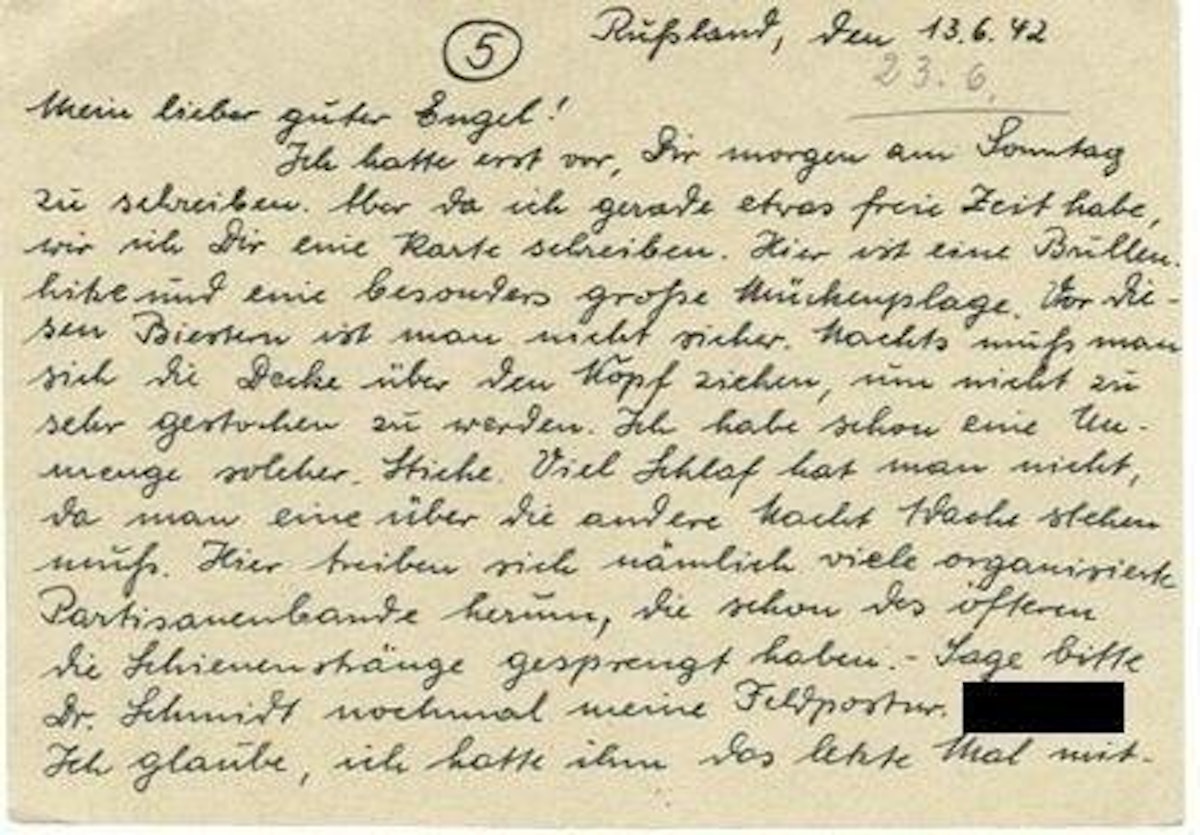 5
Rußland, den 13.6.42
23.6.
Mein lieber guter Engel!
Ich hatte erst vor, Dir morgen am Sonntag
zu schreiben. Aber da ich gerade etwas freie Zeit habe,
wir ich Dir eine Karte schreiben. Hier ist eine Bullen-
hitze und eine besonders große Mückenplage. Vor die-
sen Biestern ist man nicht sicher. Nachts muß man
sich die Decke über den Kopf ziehen, um nicht zu
sehr gestochen zu werden. Ich habe schon eine Un-
menge solcher Stiche. Viel Schlaf hat man nicht,
da man eine über die andere Nacht Wache stehen
muß. Hier treiben sich nämlich viele organisierte
Partisanenbande herum, die schon des öfteren
die Schienenstränge gesprengt haben. - Sage bitte
Dr. Schmidt nochmal meine Feldpostnr.
Ich glaube, ich hatte ihm das letzte Mal mit-